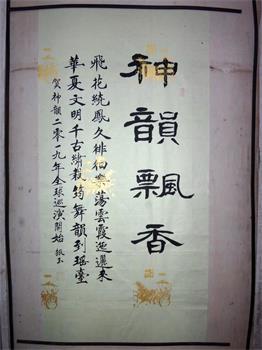 神韻飄香
飛花繞鳳久徘徊樂蕩雲霞迤邐來
華夏文明千古繡舞韻到瑤臺
賀神韻二零一九年全球巡演開始